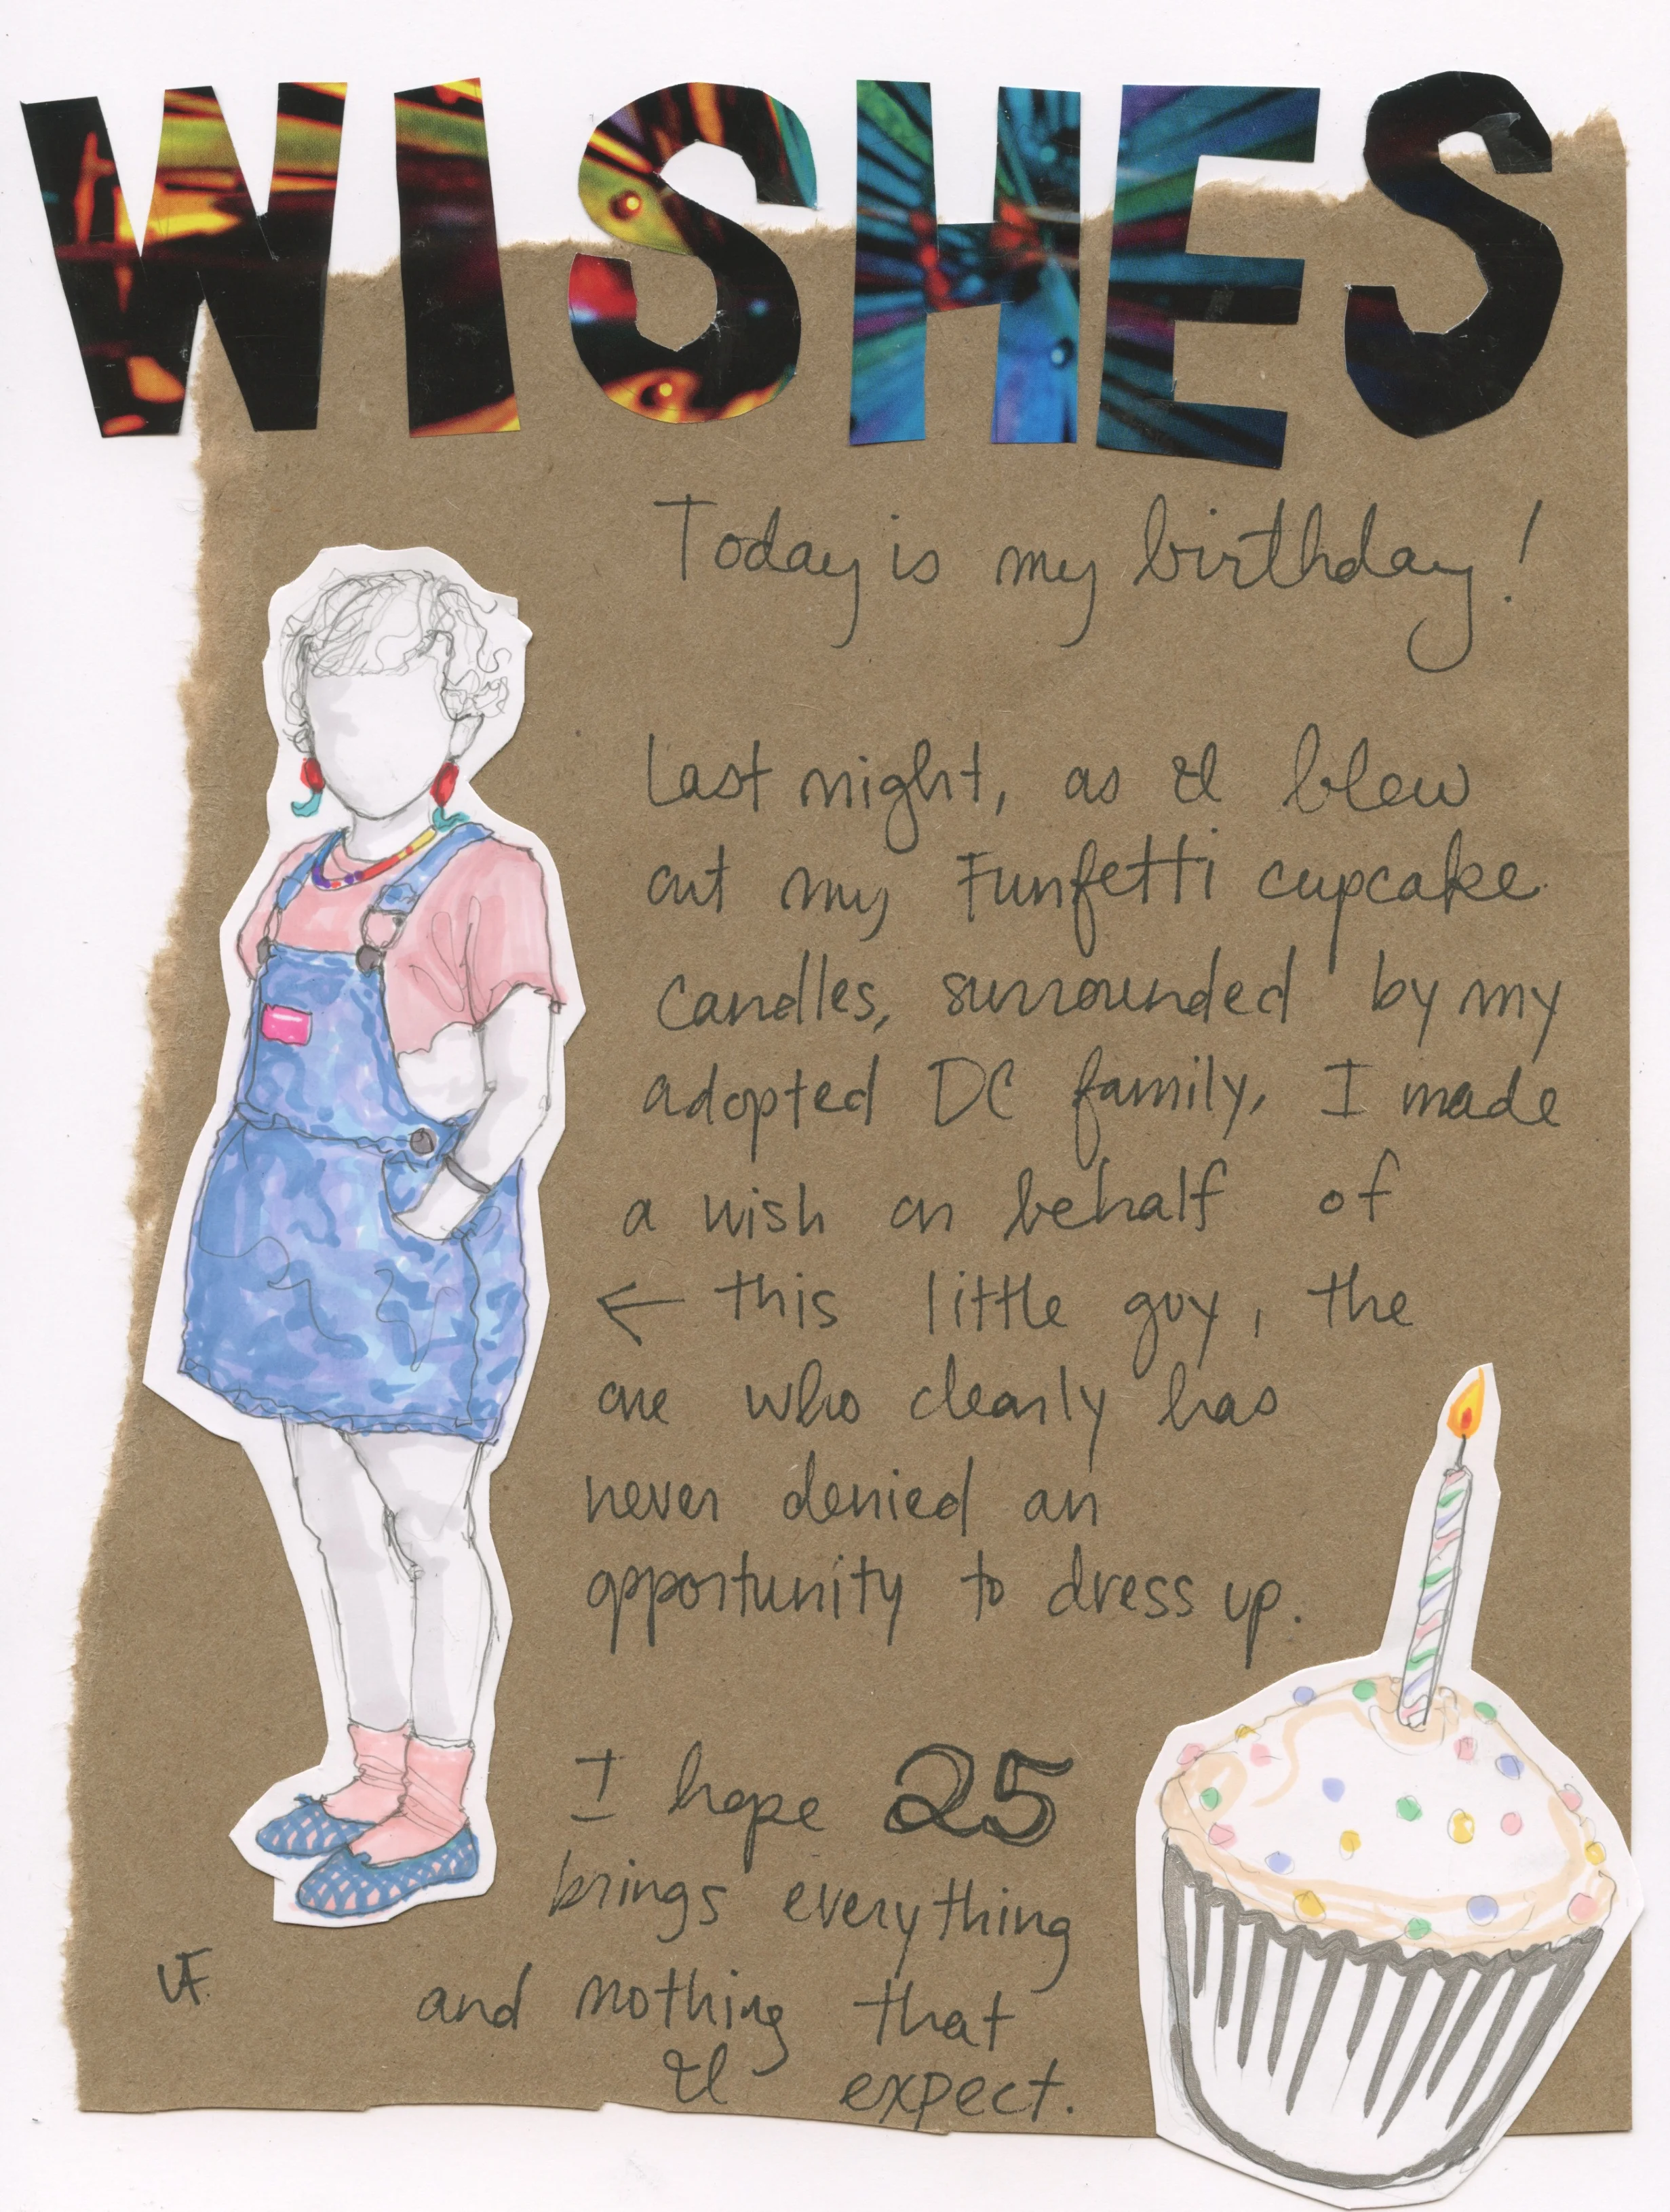 WISHES
Today is my birthday!
Last night, as I blew
out my Funfetti cupcake
candles, surrounded by my
adopted DC family, I made
a wish on behalf of
← this little guy, the
one who clearly has
never denied an
opportunity to dress up.
I hope 25
brings everything
and nothing that
I expect.
VF.